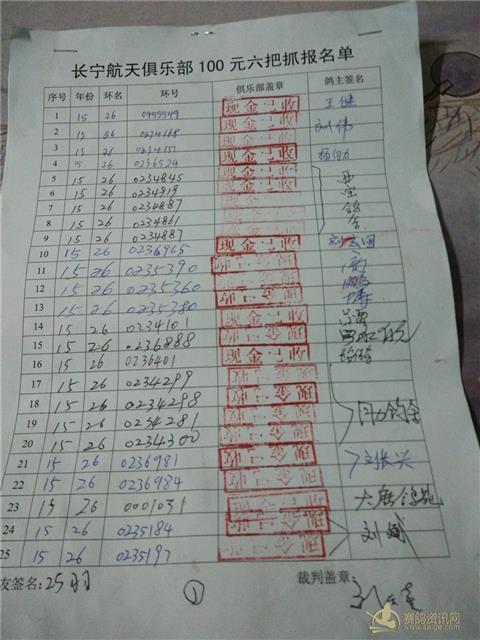 长宁航天俱乐部 100 元六把抓报名单
序号 年份 环名 环号 俱乐部盖章 鸽主签名
1 15 26 现金已收 王健
2 15 26 0234168 现金已收 刘伟
3 15 26 0234151 现金已收
4 15 26 0236524 现金已收
5 15 26 0234845 现金已收
6 15 26 0234919
7 15 26 0234887
8 15 26 0234861
9 15 26 0234887
10 15 26 0236965 现金已收
11 15 26 0235390 现金已收
12 15 26 0235360 现金已收
13 15 26 0235380 现金已收
14 15 26 0234101 现金已收
15 15 26 0236888 现金已收
16 15 26 0236401 现金已收
17 15 26 0234299 现金已收
18 15 26 0234298 现金已收
19 15 26 0234281 现金已收
20 15 26 0234300 现金已收
21 15 26 0236981 现金已收 刘振兴
22 15 26 0236984 现金已收
23 15 26 0001031 现金已收
24 15 26 0235184 现金已收 刘斌
25 15 26 0235197 现金已收
友签名: 25羽 ① 裁判盖章:
赛鸽资讯网
www.saige.com